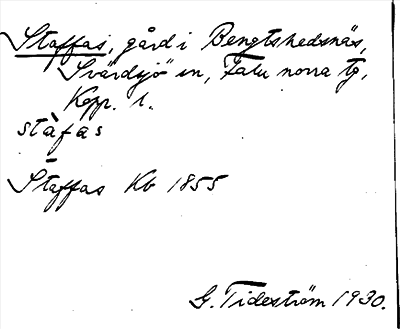 Staffas, gård i Bengtshedsnäs,
Svärdsjö sn, Falu norra tg,
Kopp. l.
stàfas
Staffas Kb 1855
G. Tideström 1930.